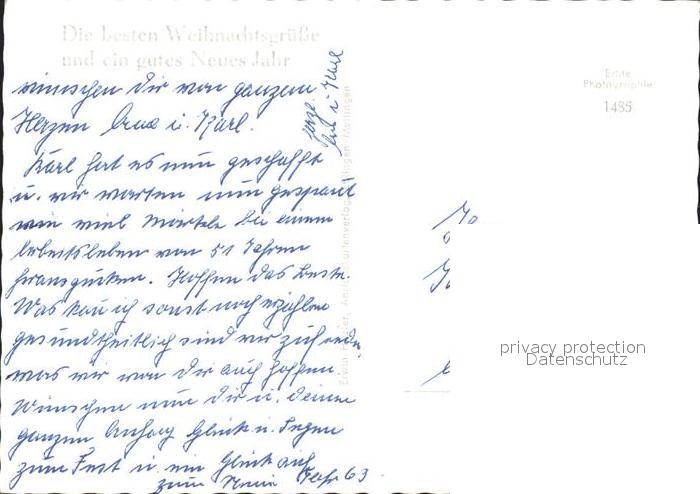 Die besten Weihnachtsgrüße
und ein gutes Neues Jahr
wünschen Dir von ganzem
Herzen Erna u. Karl.
Karl hat es nun geschafft
u. wir warten nun gespannt
wie viel bei einem
Arbeitsleben von 51 Jahren
herausgucken. Hoffen das Beste.
Was kan ich sonst noch erzählen
gesundtheitlich sind wir zufrieden,
was wir von Dir auch hoffen.
Wünschen nun Dir u. Deinen
ganzen Anhang Glück u. Segen
zum Fest u. ein Glück auf
zum Neuen Jahr 63
Echte
Photographie
1485
privacy protection
Datenschutz